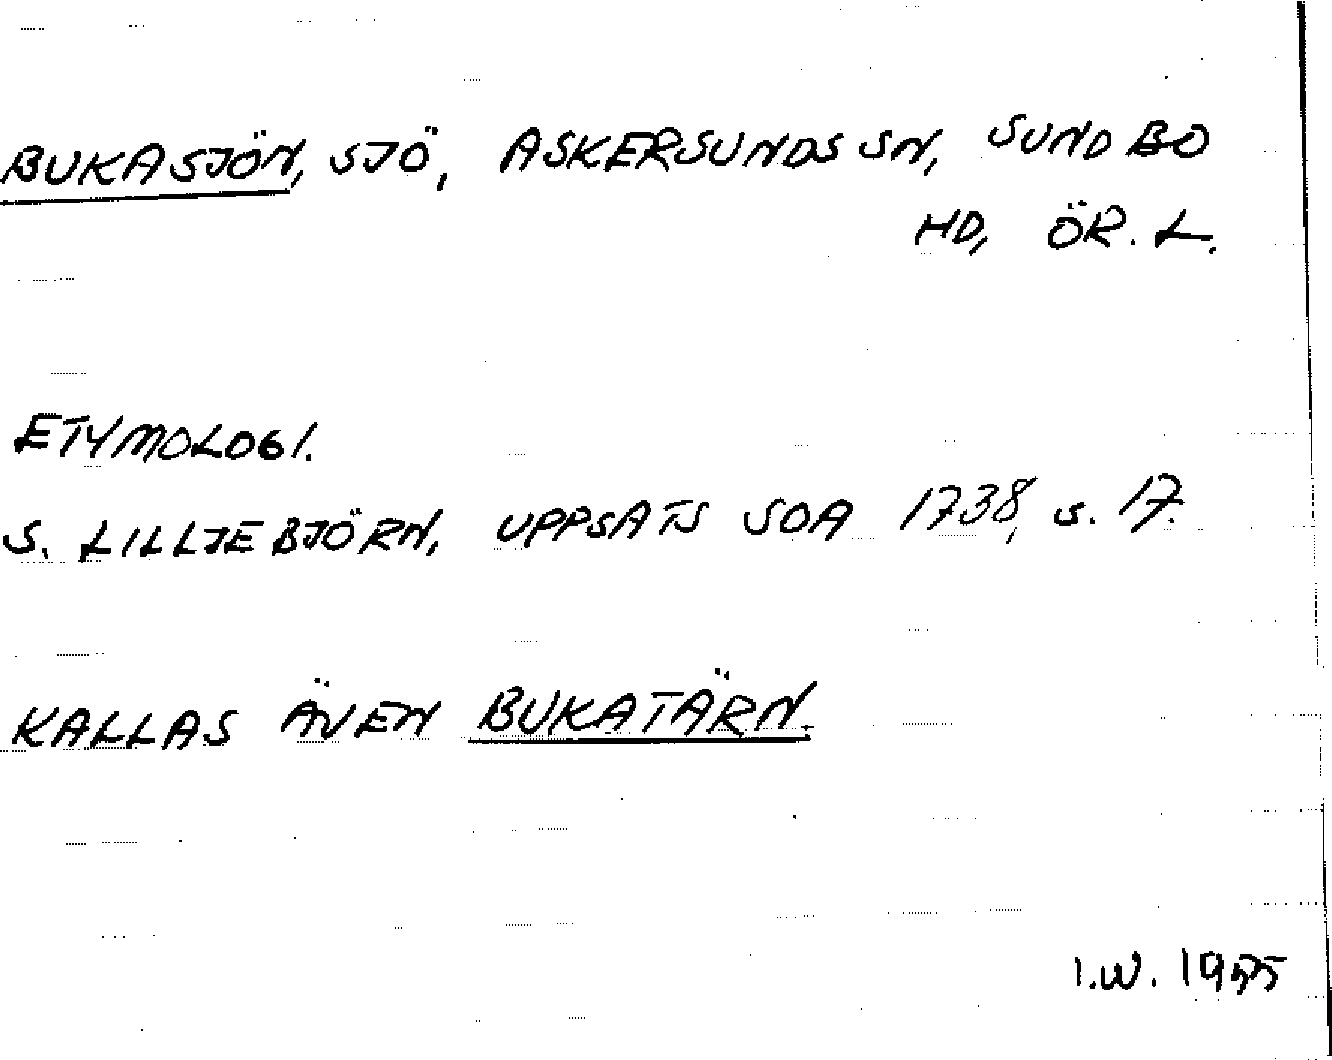 BUKASJÖN, SJÖ, ASKERSUNDS SN, SUNDBO
HD, ÖR. L.
ETYMOLOGI.
S. LILLJEBJÖRN, UPPSATS SOA 1738, s. 17.
KALLAS ÄVEN BUKATÄRN.
I.W.